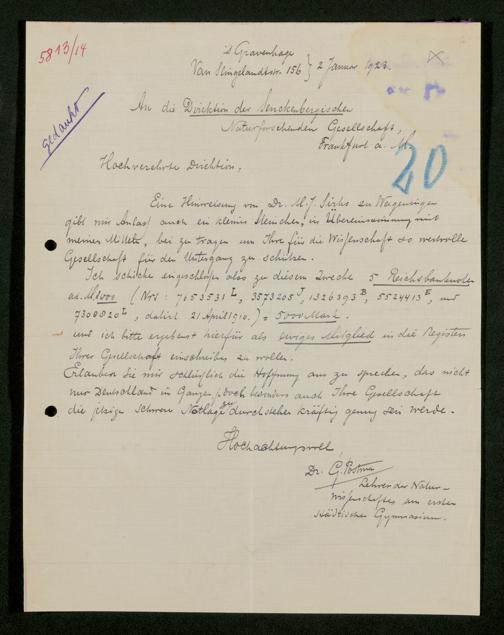 5813/14
's Gravenhage
Van Slingelandtstr. 156 } 2 Januar 1923.
gedankt
An die Direktion der Senckenbergischen
Naturforschenden Gesellschaft,
Frankfurt a. M.
20
Hochverehrte Direktion,
Eine Hinweisung von Dr. M. J. Sirks zu Wageningen
gibt mir Anlass auch ein kleines , in Übereinstimmung mit
meiner Mitteln, bei zu tragen um Ihre für die Wissenschaft so wertvolle
Gesellschaft für den Untergang zu schützen.
Ich schicke eingeschlossen also zu diesem Zwecke 5 Reichsbanknoten
ad. M. 1000 (Nrs: 7653531 L, 3573205 J, 1326393 B, 5524413 E, und
7300820 L, datirt 21 April 1910.) = 5000 Mark.
und ich bitte ergebenst hierfür als ewiges Mitglied in die Registers
Ihres Gesellschaft einschreiben zu wollen.
Erlauben Sie mir schliesslich die Hoffnung aus zu sprechen, das nicht
nur Deutschland in Ganzen, doch besonders auch Ihre Gesellschaft
die jetzige schwere Notlage durchstehen kräftig genug sein werde.
Hochachtungsvoll
Dr. G. Postma
Lehrer der Natur-
wissenschaften am ersten
städtischen Gymnasium.